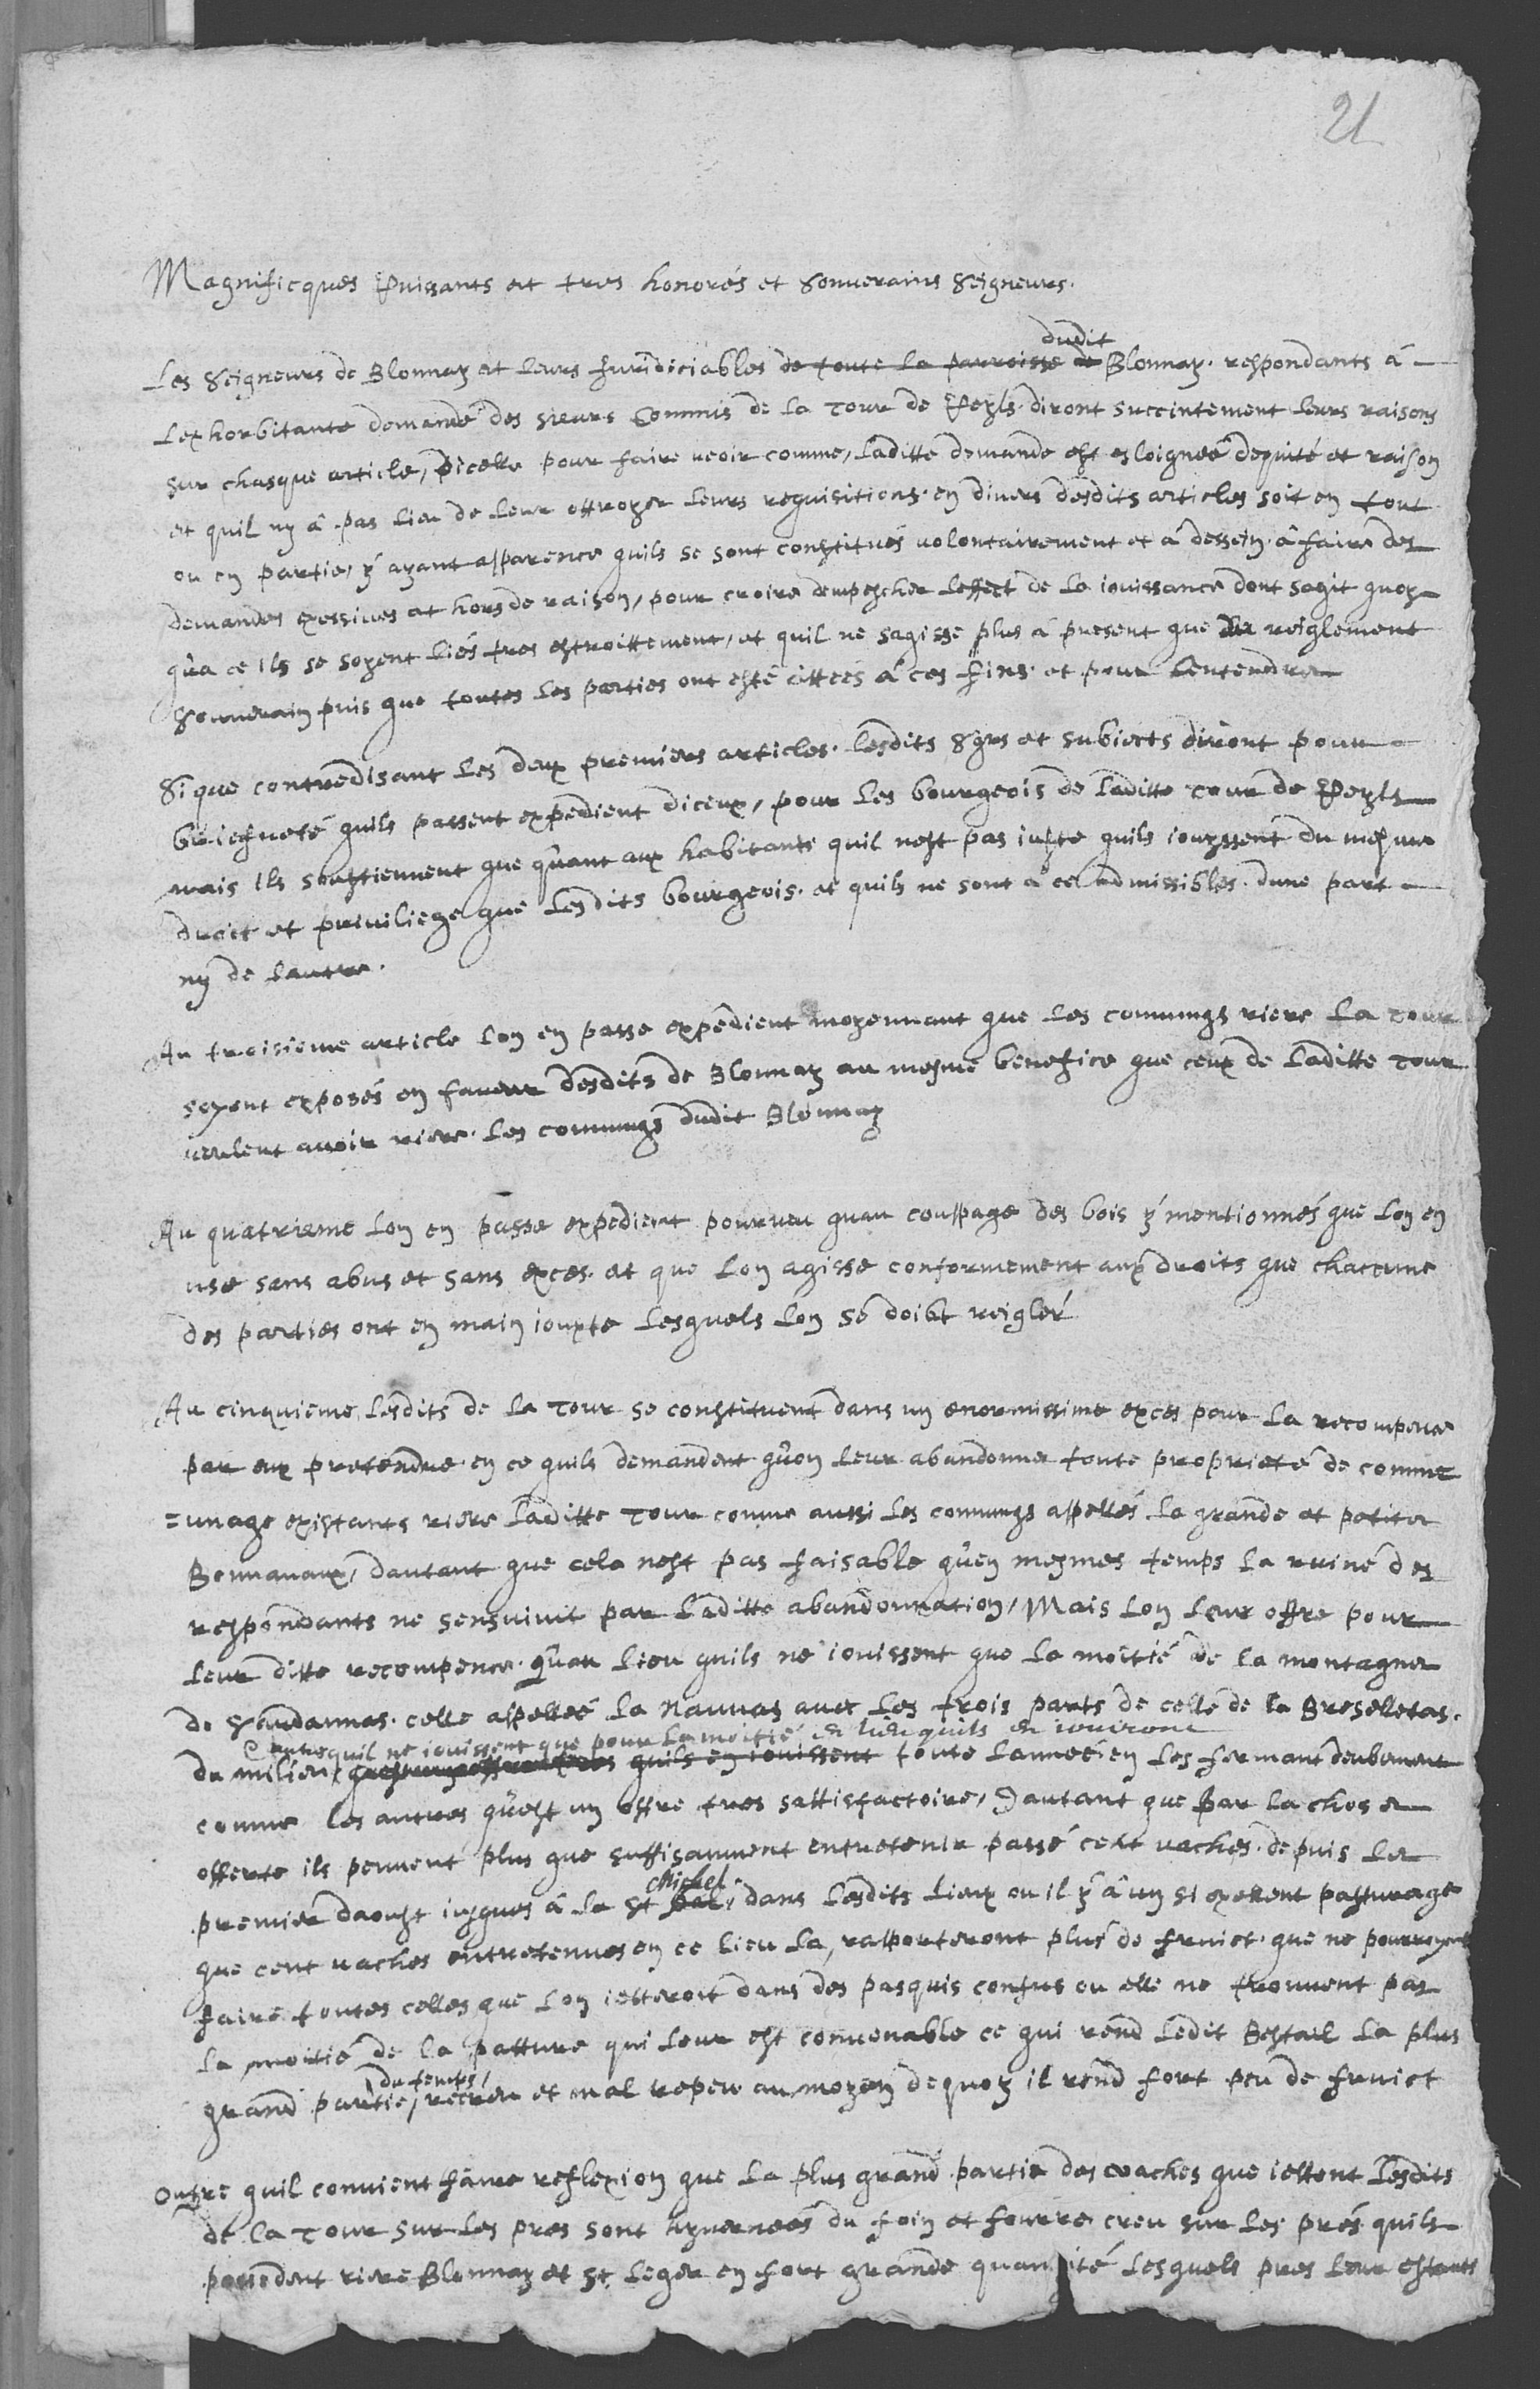 21
Magnificques Puissants et tres honorés et Souverains Seigneurs.
dudit
Les Seigneurs de Blonnay et leurs Juridiciables de toute la parroisse de Blonnay. respondants á
Lexhorbitante demande des sieurs Commis de la Tour de Peyls. diront succintement leurs raisons
sur chasque article, dicelle pour faire veoir comme, laditte demande est esloignée dequité et raison
et quil ny â pas lieu de leur ottroyer leurs requisitions. en divers desdits articles soit en tout
ou en partie, ÿ ayant apparence quils se sont constitués volontairement et á dessein. á faire des
demandes exessives et hors de raison, pour croire dempescher leffect de la iouissance dont sagit quoy
qu'a ce ils se soyent liés tres estroittement, et quil ne sagisse plus á present que du reiglement
Souverain puis que toutes les parties ont esté cittées á ces fins. et pour lentendre
Si que contredisant les deux premiers articles. lesdits Sgrs et subiects diront pour
briefveté quils passent expedient diceux, pour les bourgeois de laditte Tour de Peyls
mais ils soustiennent que qu'ant aux habitants quil nest pas iuste quils iouyssent du mesme
droit et priviliege que lesdits bourgeois. et quils ne sont á ce admissibles. dune part
ny de lautre.
Au troisieme article lon en passe expedient moyennant que les comungs riere la Tour
soyent exposés en faveur desdits de Blonnay au mesme benefice que ceux de laditte Tour
veulent avoir riere. les comungs dudit Blonnay
Au quatrieme lon en passe expedient pourveu quau couppage des bois ÿ mentionnés que lon en
use sans abus et sans exces. et que lon agisse conformement aux droits que chaccune
des parties ont en main iouxte lesquels lon se doibt reigler
Au cinquieme, lesdits de la Tour se constituent dans un enormissime exces pour la recompence
par eux pretendue. en ce quils demandent qu'on leur abandonne toute proprieté de comm
=unage existants riere laditte Tour comme aussi les comungs appellés la grande et petite
Bonnavaux, dautant que cela nest pas faisable qu'en mesmes temps la ruine des
respondants ne sensuivit par laditte abandonnation, Mais lon leur offre pour
leur ditte recompence. qu'au lieu quils ne iouissent que la moitié de la montagne
de Chaudannes. celle appellée la Nauvas avec les trois parts de celle de la Breselletas.
quil ne iouissent que pour la moitié et lieu quils en iouiront
du milieu, quils en iouissent toute lannee en les fermant deubement
comme les autres qu'est un offre tres sattisfactoire, Dautant que par la chose
offerte ils peuvent plus que suffisamment entretenir passé cent vaches. depuis le
Michel
premier daoust iusques â la St, dans lesdits lieux ou il ÿ â un si exellent pasturage
que cent vaches entretenues en ce lieu la, rapporteront plus de fruict. que ne pourroyent
faire toutes celles que lon ietteroit dans des pasquis confus ou elle ne trouvent pas
la moitié de la patture qui leur est convenable ce qui rend ledit Bestail la plus
du temps,
grand partie, recreu et mal repeu au moyen dequoy il rend fort peu de fruict
Outre quil convient faire reflexion que la plus grand partie des vaches que iettent lesdits
de la Tour sur les pres sont hyvernées du foin et fourre creu sur les prés quils
possedent riere Blonnay et St Leger en fort grande quantité lesquels pres leur estants